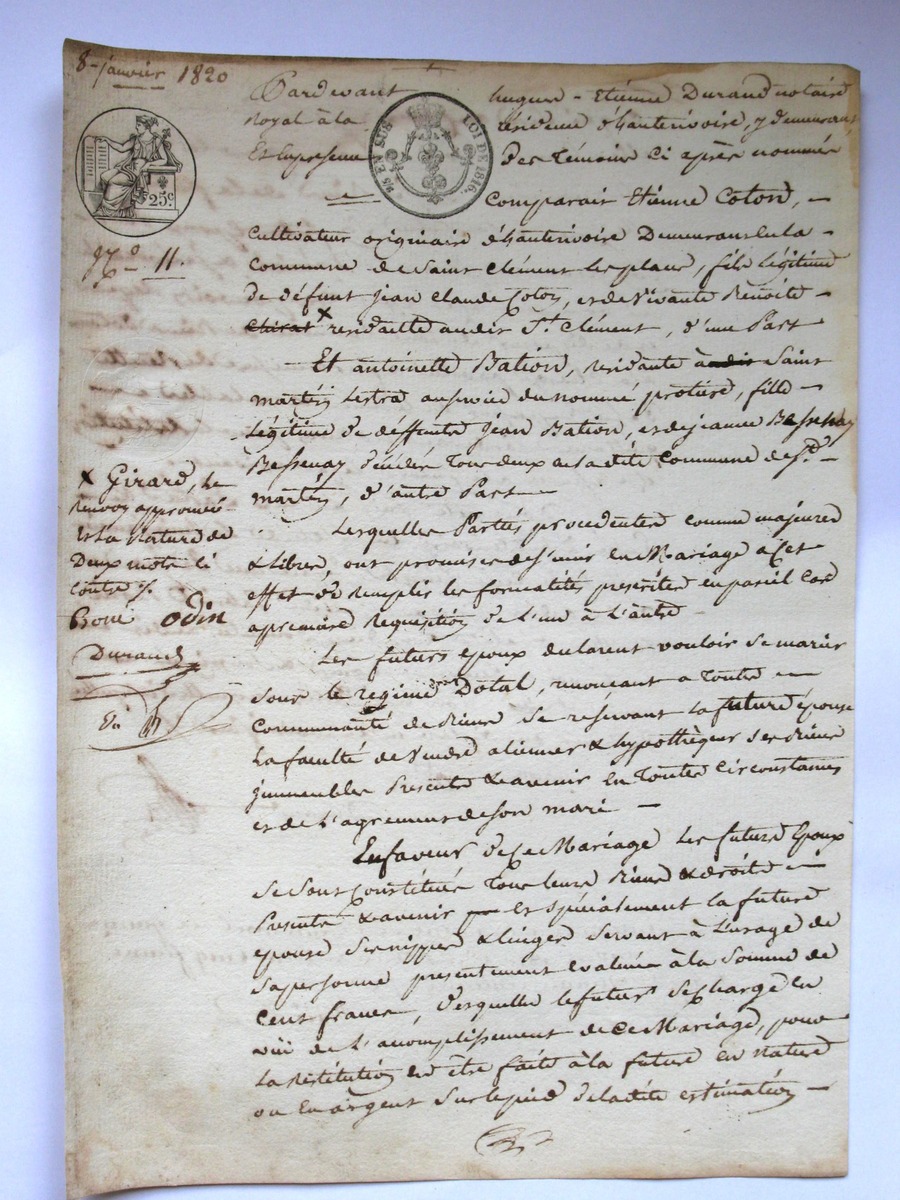 8 janvier 1820
Pardevant hugues - Etienne Durand notaire
royal à la résidence d'hauterivoire, y demeurant,
Et En presence Des Témoins Ci après nommés
25 EN SUS LOI DE 1816.
25c.
No 11.
Comparait Etienne Coton, -
Cultivateur originaire d'hauterivoire Demeurant en la -
Commune de Saint Clément les places, fils légitime
de défunt jean Claude Coton, et de vivante Benoite -
Chirat x residante audit St. Clément, d'une Part
Et antoinette Bation, residante à audit Saint
martin lestra au service du nommé protiere, fille -
Légitime de deffunts jean Bation, et de jeanne Bessenay
Bessenay décédés Tous deux en la dite Commune de St. -
martin, d'autre Part -
Lesquelles Parties procedentes comme majeures
& libres, ont promises de s'unir en Mariage a Cet
effet de remplir les formalités prescrites en pareil Cas
a premiere Requisition de L'une à L'autre
Les futurs epoux declarent vouloir se marier
sous le regime Dotal, renoncant a Toute -
Communauté de Biens se réservant la future épouse
La faculté de Vendre aliener & hypothéquer ses Biens
jmmeubles Presents & avenir En Toutes Circonstances
et de L'agrement de son mari -
En faveur de Ce Mariage Les futurs Epoux
Se sont Constitués Tous leurs Biens & droits -
Presents & avenir Et spécialement la future
epouse ses nippes & linges servant à L'usage de
sa personne presentement evalués à la Somme de
Cent francs, desquelles le futur se charge en
vüe de L'accomplissement de Ce Mariage, pour
La restitution en être faite à la future en nature
ou En argent Sur le pied de la dite estimation -
x Girard, Le
renvoy approuvé
Et la rature de
Deux mots ci
Contre
Boué odin
Durand